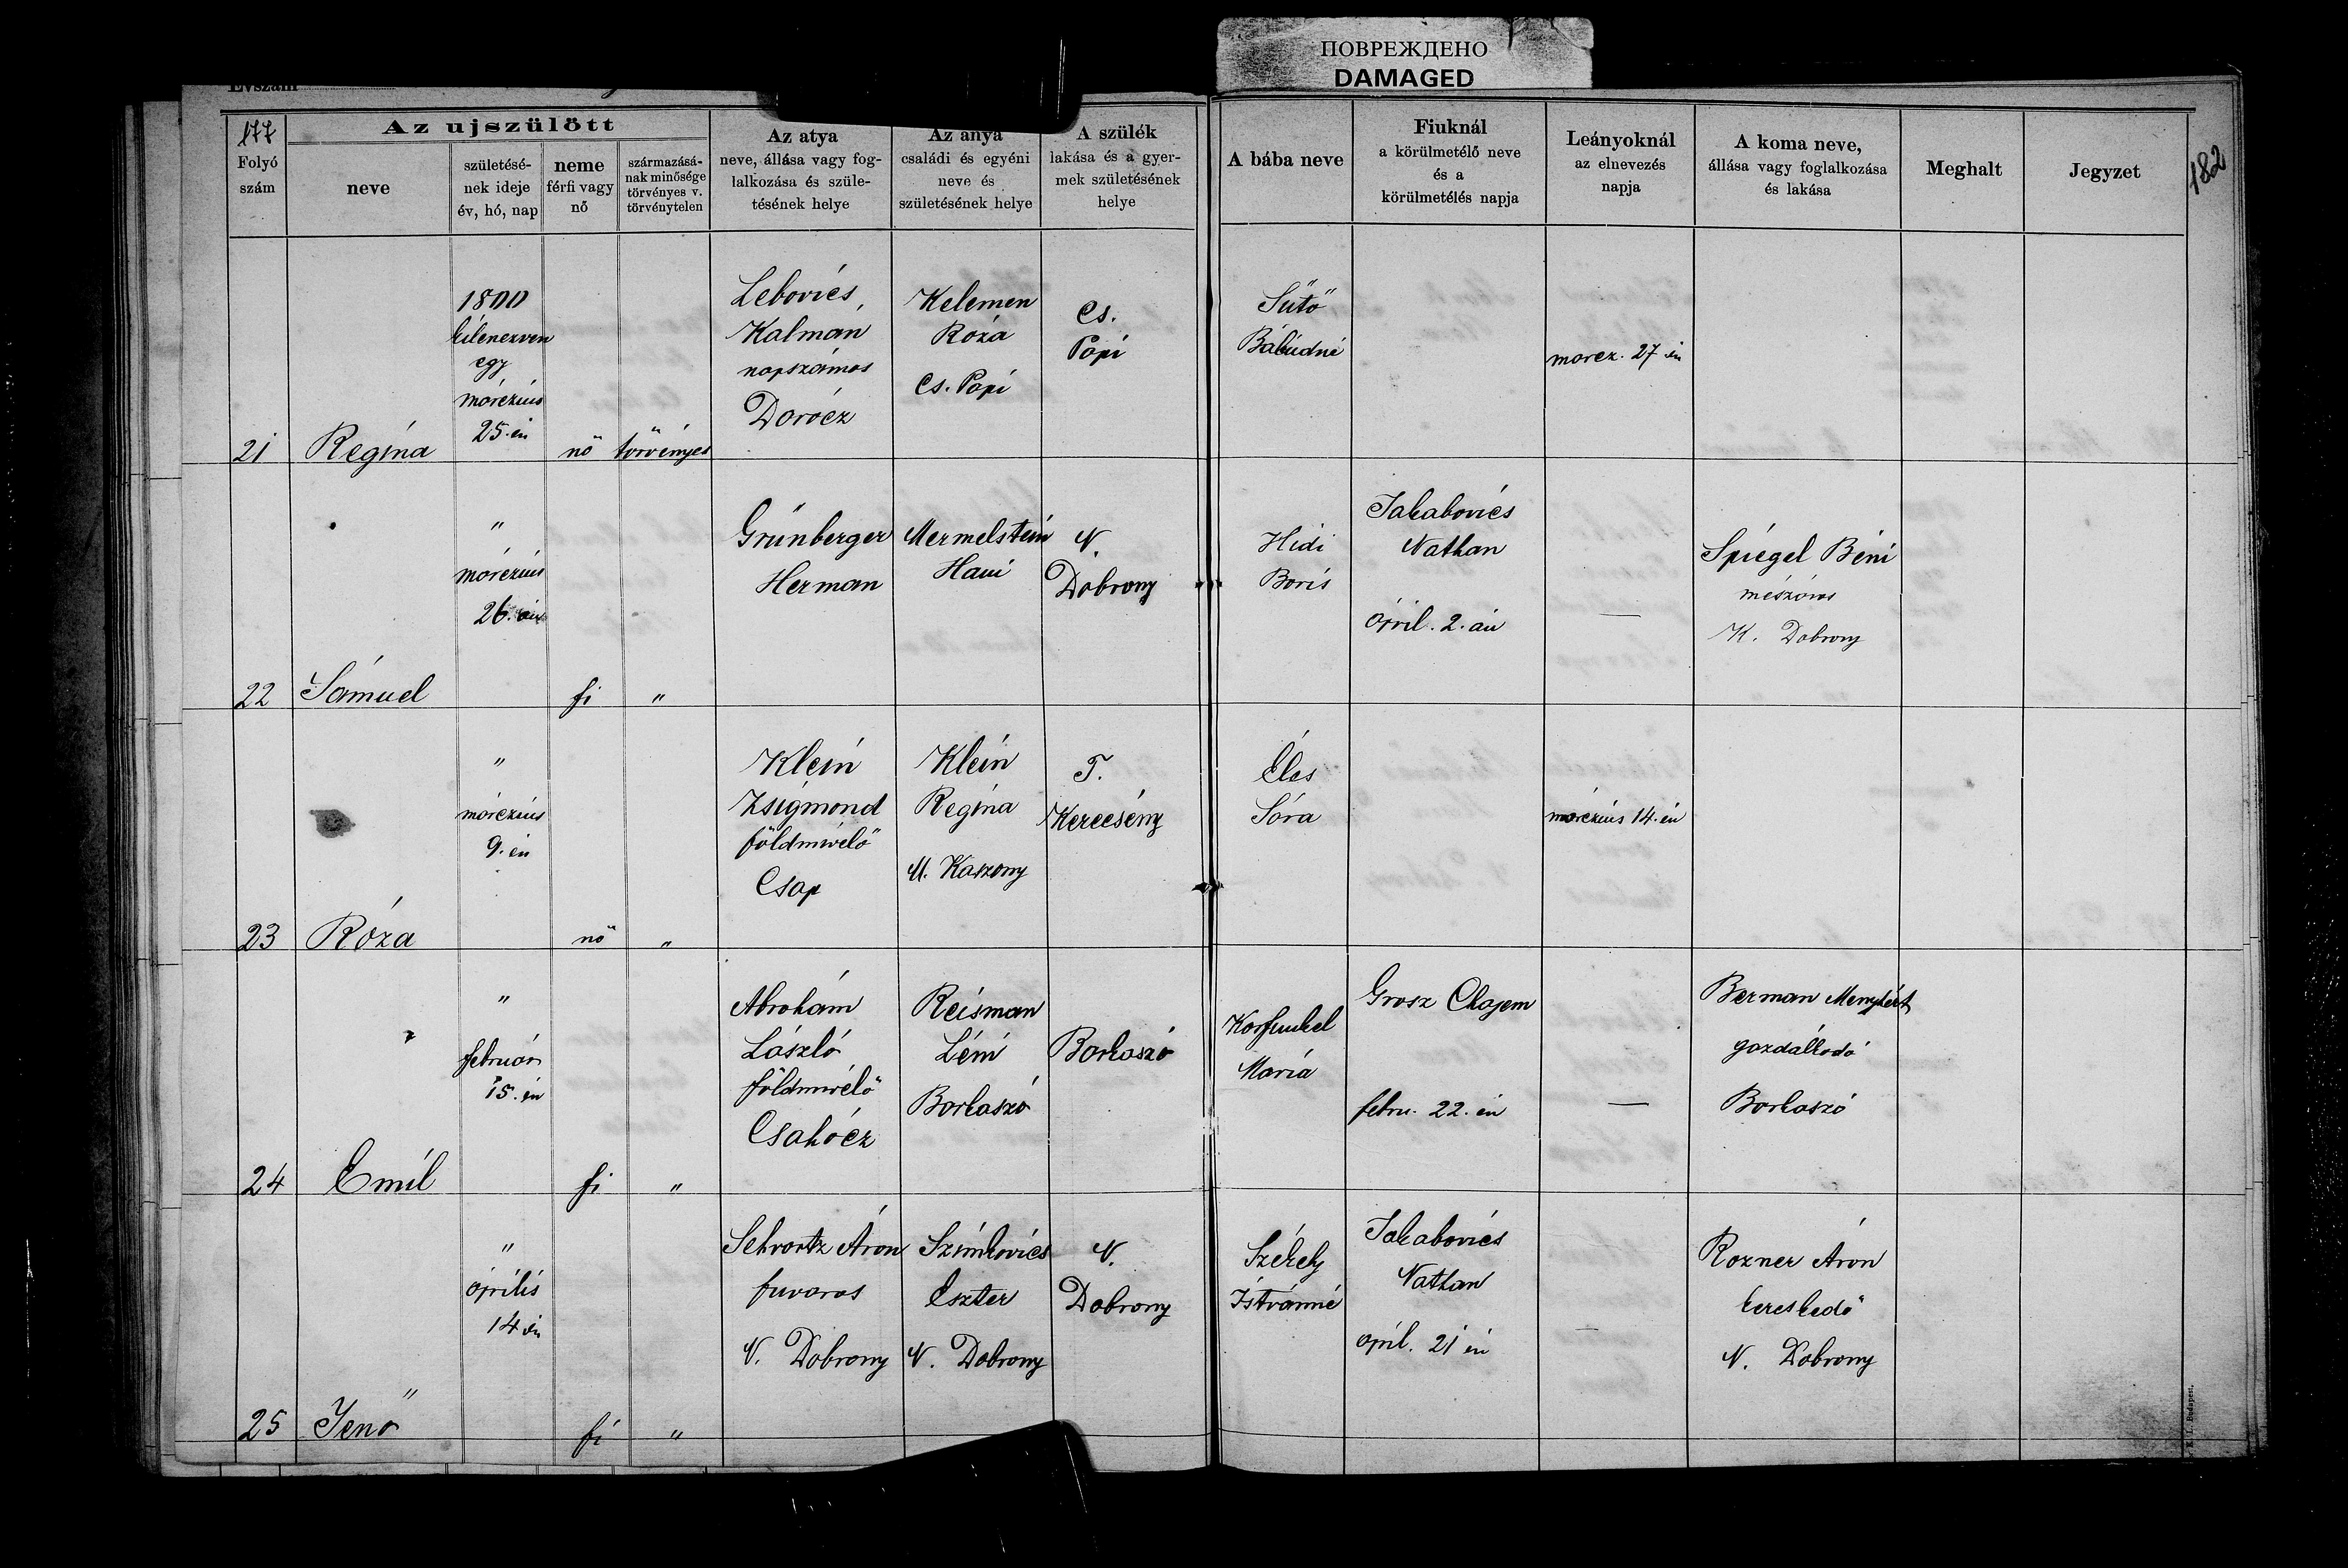 ПОВРЕЖДЕНО
DAMAGED
Évszám
177
182
Az ujszülött
Folyó szám
neve
születésé-
nek ideje
év, hó, nap
neme
férfi vagy
nő
származásá-
nak minősége
törvényes v.
törvénytelen
Az atya
neve, állása vagy fog-
lalkozása és szüle-
tésének helye
Az anya
családi és egyéni
neve és
születésének helye
A szülék
lakása és a gyer-
mek születésének
helye
A bába neve
Fiuknál
a körülmetélő neve
és a
körülmetélés napja
Leányoknál
az elnevezés
napja
A koma neve,
állása vagy foglalkozása
és lakása
Meghalt
Jegyzet
21
Regina
1800
kilenczven
egy
márczius
25-én
nő
törvényes
Lebovics
Kalmán
napszámos
Darócz
Kelemen
Róza
Cs. Papi
Cs.
Papi
Sütő
marcz. 27 én
22
Sámuel
"
márczius
26. án
fi
"
Grünberger
Herman
Mermelstein
Hani
N.
Dobrony
Hidi
Boris
Jakabovics
Nathan
ápril. 2. án
—
Spiegel Béni
mészáros
K. Dobrony
23
Róza
"
márczius
9. én
nő
"
Klein
Zsigmond
földmivelő
Csap
Klein
Regina
M. Kaszony
T.
Kerecsény
Éles
Sára
márczius 14. én
24
Emil
"
február
15. én
fi
"
Abrahám
László
földmivelő
Csakócz
Reisman
Léni
Barkaszó
Barkaszó
Karfunkel
Mária
Grosz Chajem
febru. 22. én
—
Berman Menyhért
gazdálkodó
Barkaszó
25
Jenő
"
április
14 én
fi
"
Schvartz Áron
fuvaros
N. Dobrony
Szimkovics
Eszter
N. Dobrony
N.
Dobrony
Székely
Istvánné
Jakabovics
Nathan
ápril. 21 én
—
Rozner Áron
kereskedő
N. Dobrony